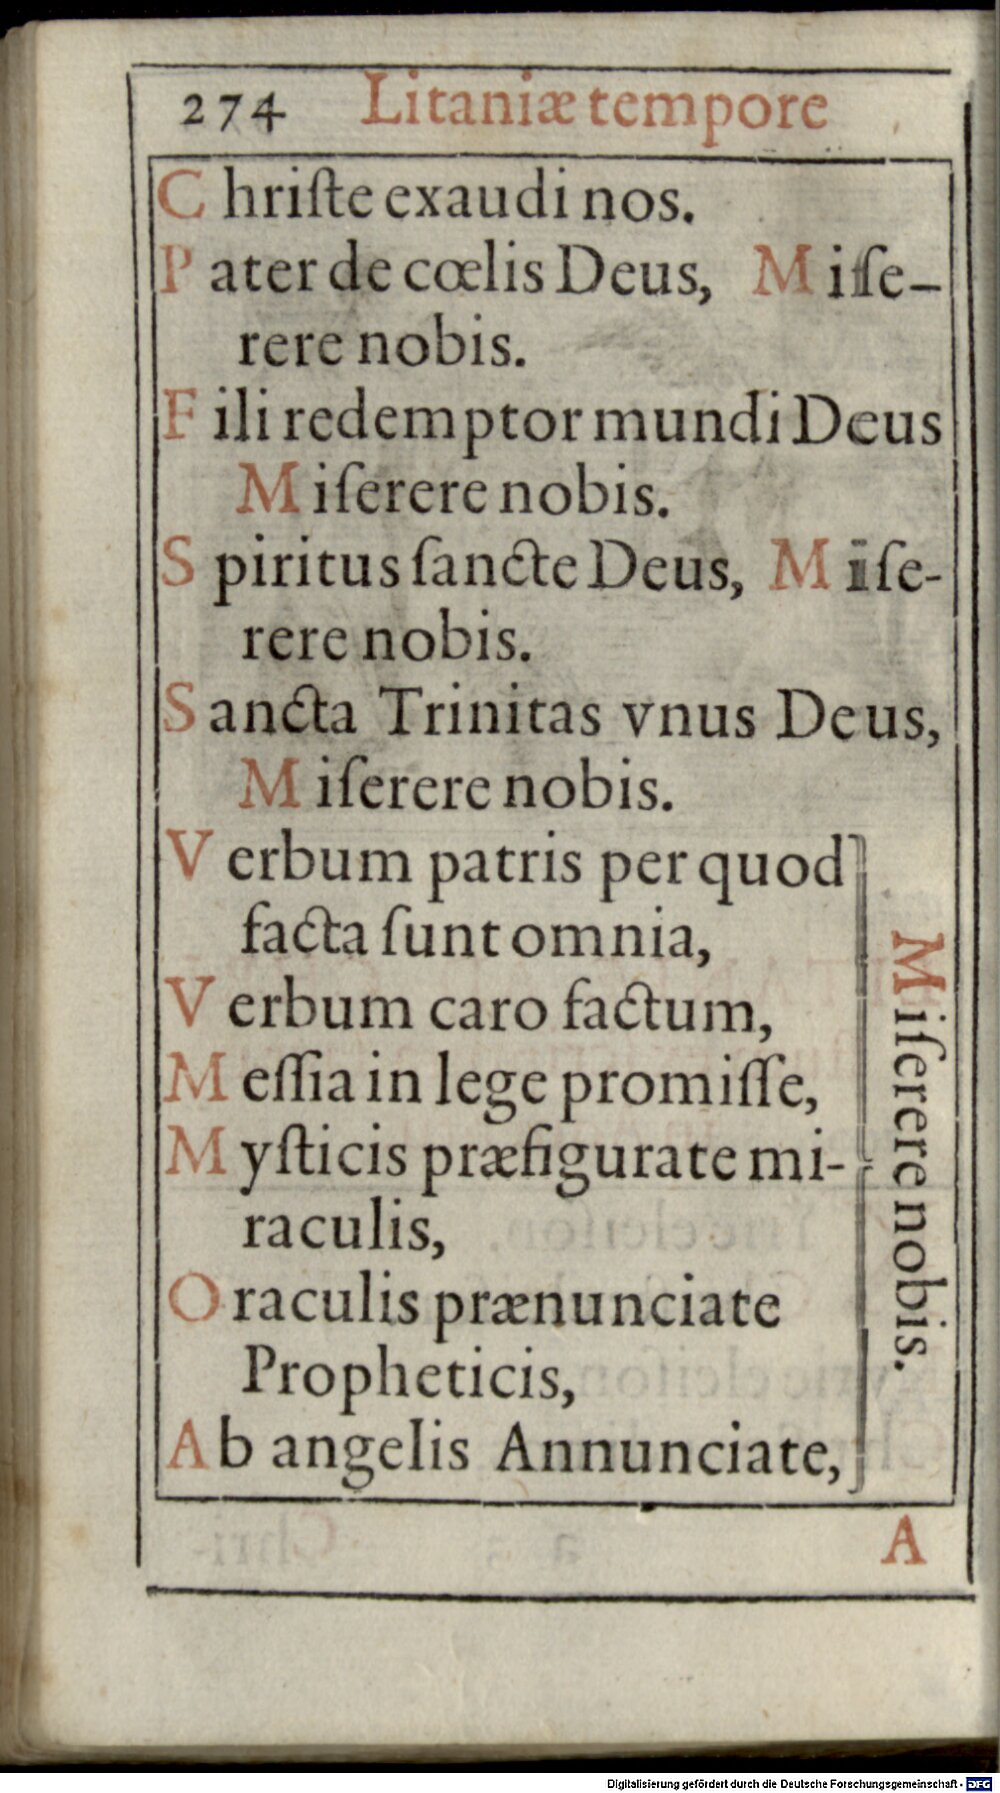 274 Litaniæ tempore
Chriſte exaudi nos.
Pater de cœlis Deus, Miſe-
rere nobis.
Fili redemptor mundi Deus
Miſerere nobis.
Spiritus ſancte Deus, Miſe-
rere nobis.
Sancta Trinitas vnus Deus,
Miſerere nobis.
Verbum patris per quod
facta ſunt omnia,
Verbum caro factum,
Meſſia in lege promiſſe,
Myſticis præfigurate mi-
raculis,
Oraculis prænunciate
Propheticis,
Ab angelis Annunciate,
Miſerere nobis.
A
Digitalisierung gefördert durch die Deutsche Forschungsgemeinschaft - DFG